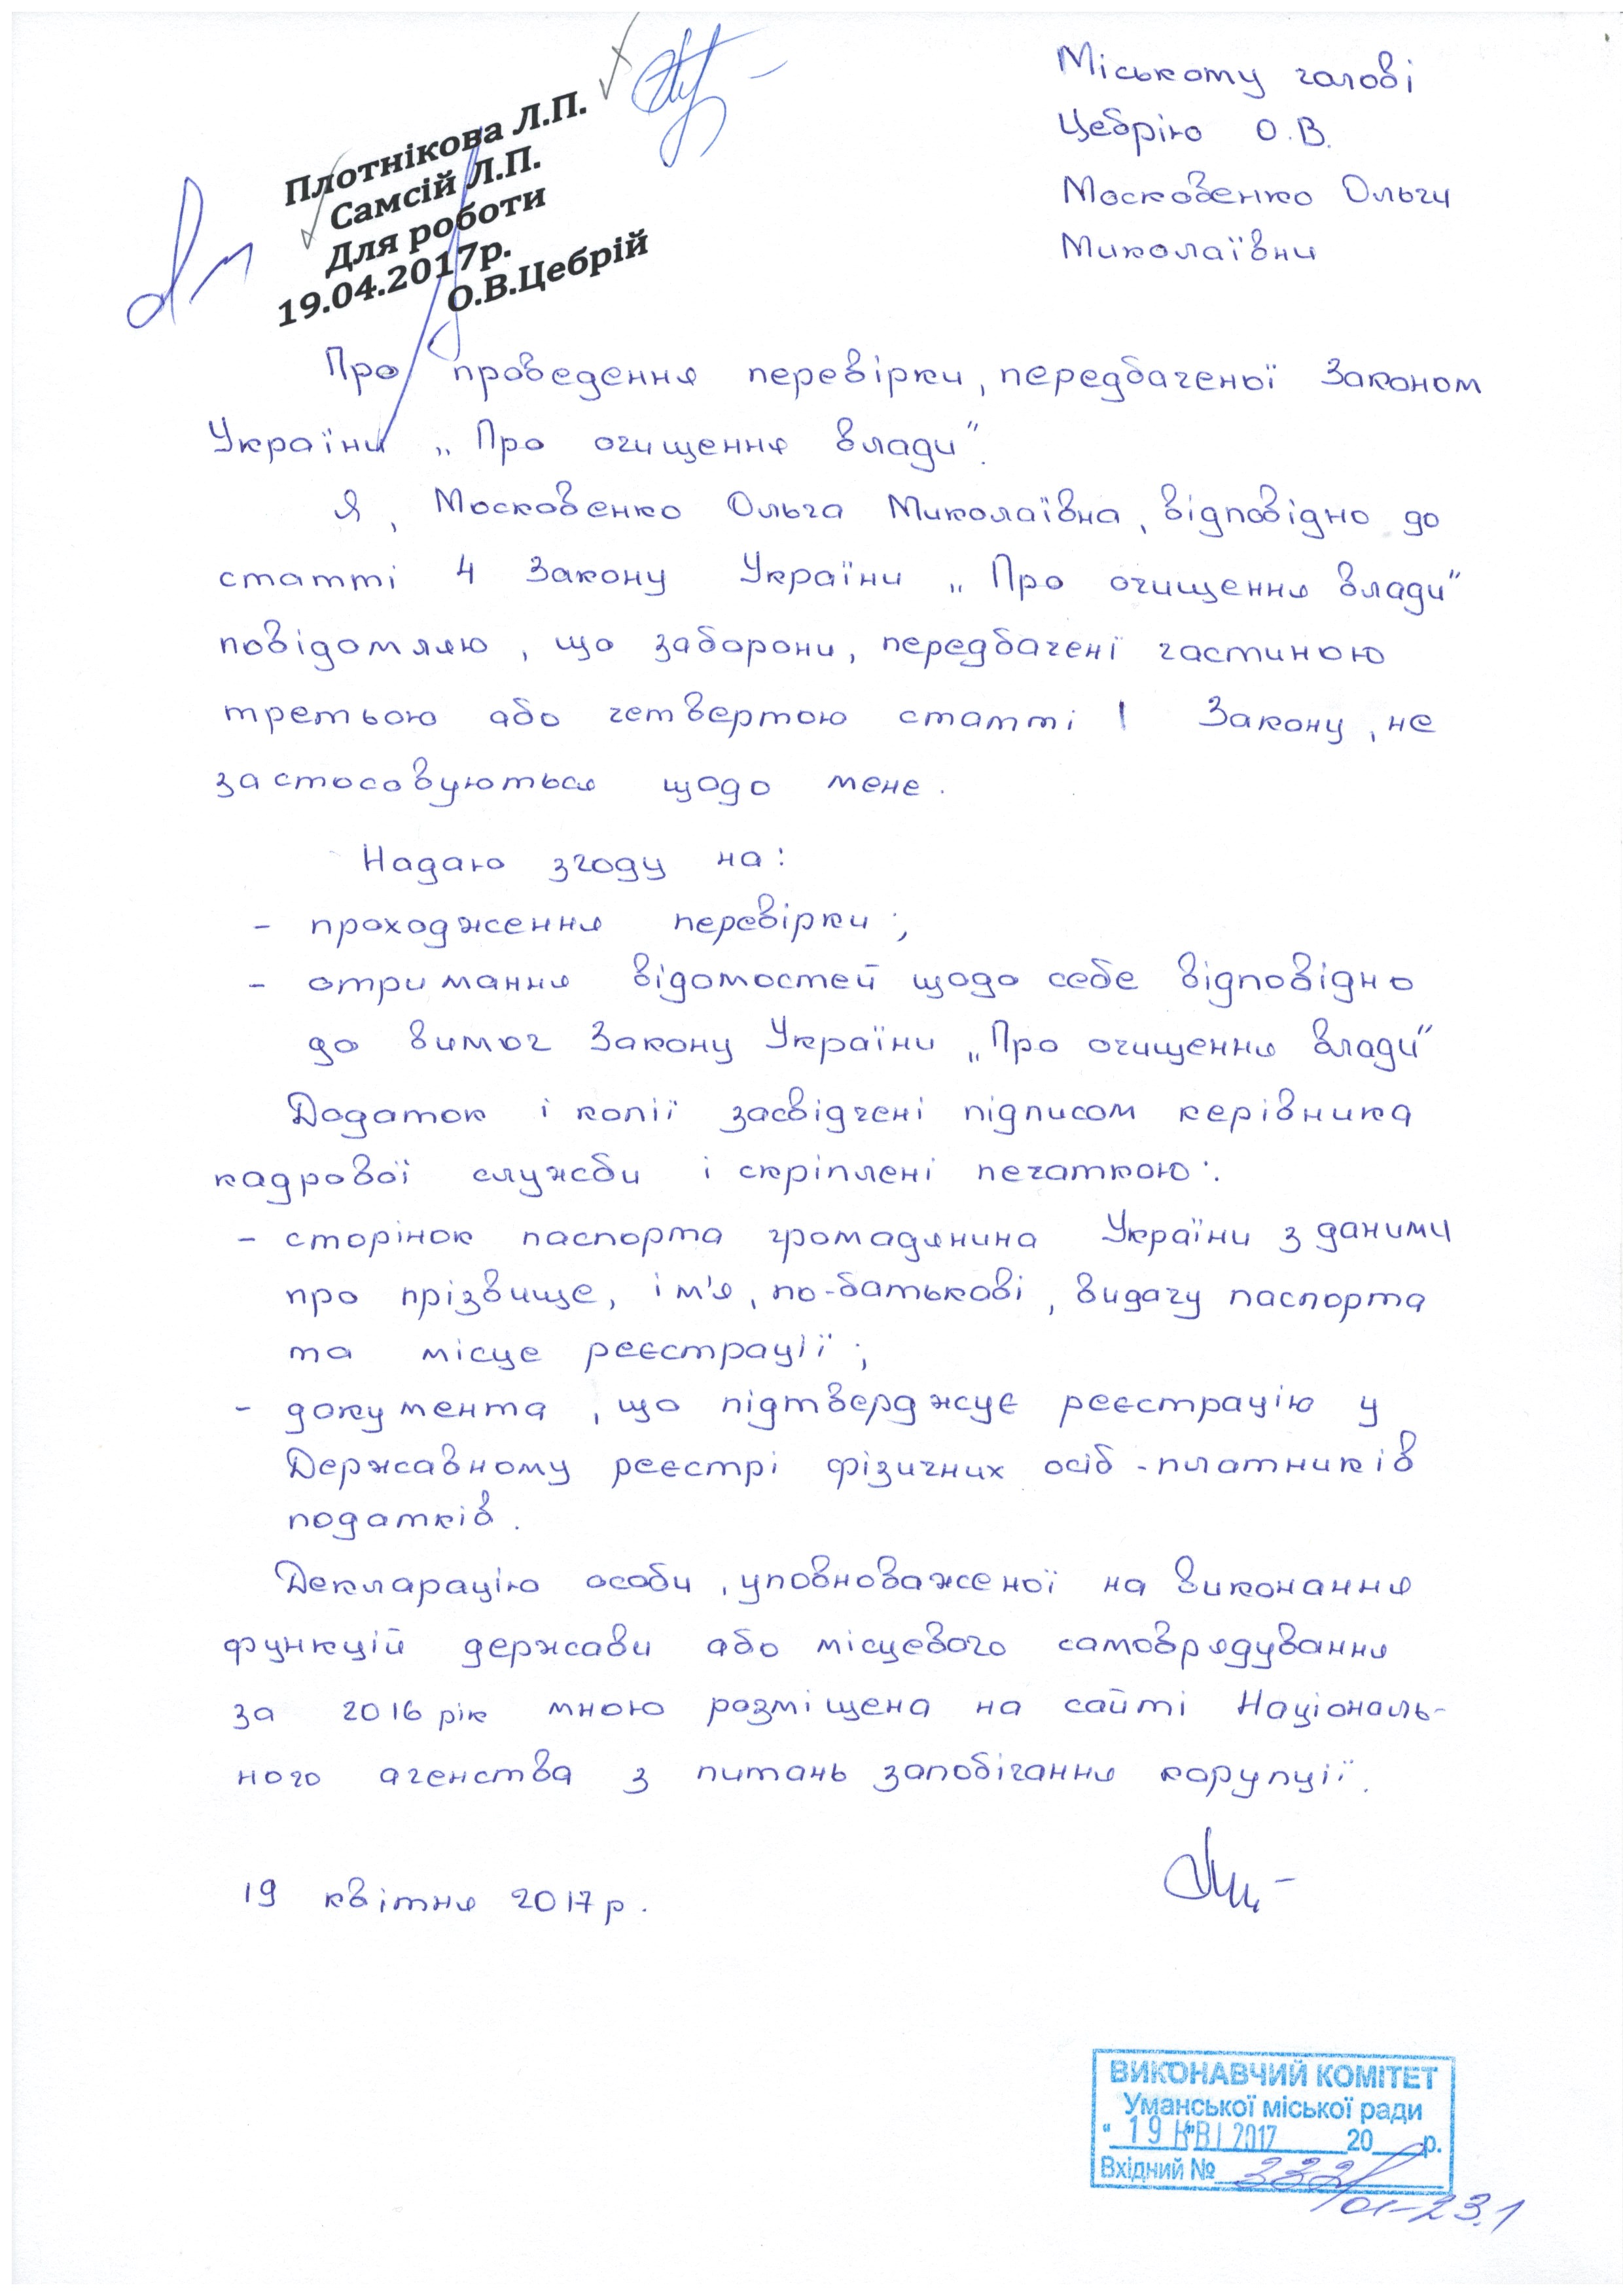 Міському голові
Цебрію О.В.
Московенко Ольги
Миколаївни
Плотнікова Л.П.
Самсій Л.П.
Для роботи
19.04.2017р.
О.В.Цебрій
Про проведення перевірки, передбаченої Законом
України „Про очищення влади".
Я, Московенко Ольга Миколаївна, відповідно до
статті 4 Закону України „Про очищення влади"
повідомляю, що заборони, передбачені частиною
третьою або четвертою статті 1 Закону, не
застосовуються щодо мене.
Надаю згоду на:
- проходження перевірки;
- отримання відомостей щодо себе відповідно
до вимог Закону України „Про очищення влади"
Додаток і копії засвідчені підписом керівника
кадрової служби і скріплені печаткою:
- сторінок паспорта громадянина України з даними
про прізвище, ім'я, по-батькові, видачу паспорта
та місце реєстрації;
- документа, що підтверджує реєстрацію у
Державному реєстрі фізичних осіб-платників
податків.
Декларацію особи, уповноваженої на виконання
функцій держави або місцевого самоврядування
за 2016 рік мною розміщена на сайті Національ-
ного агенства з питань запобігання корупції.
19 квітня 2017 р.
ВИКОНАВЧИЙ КОМІТЕТ
Уманської міської ради
"19 КВІ 2017 20 р.
Вхідний №
01-23.1